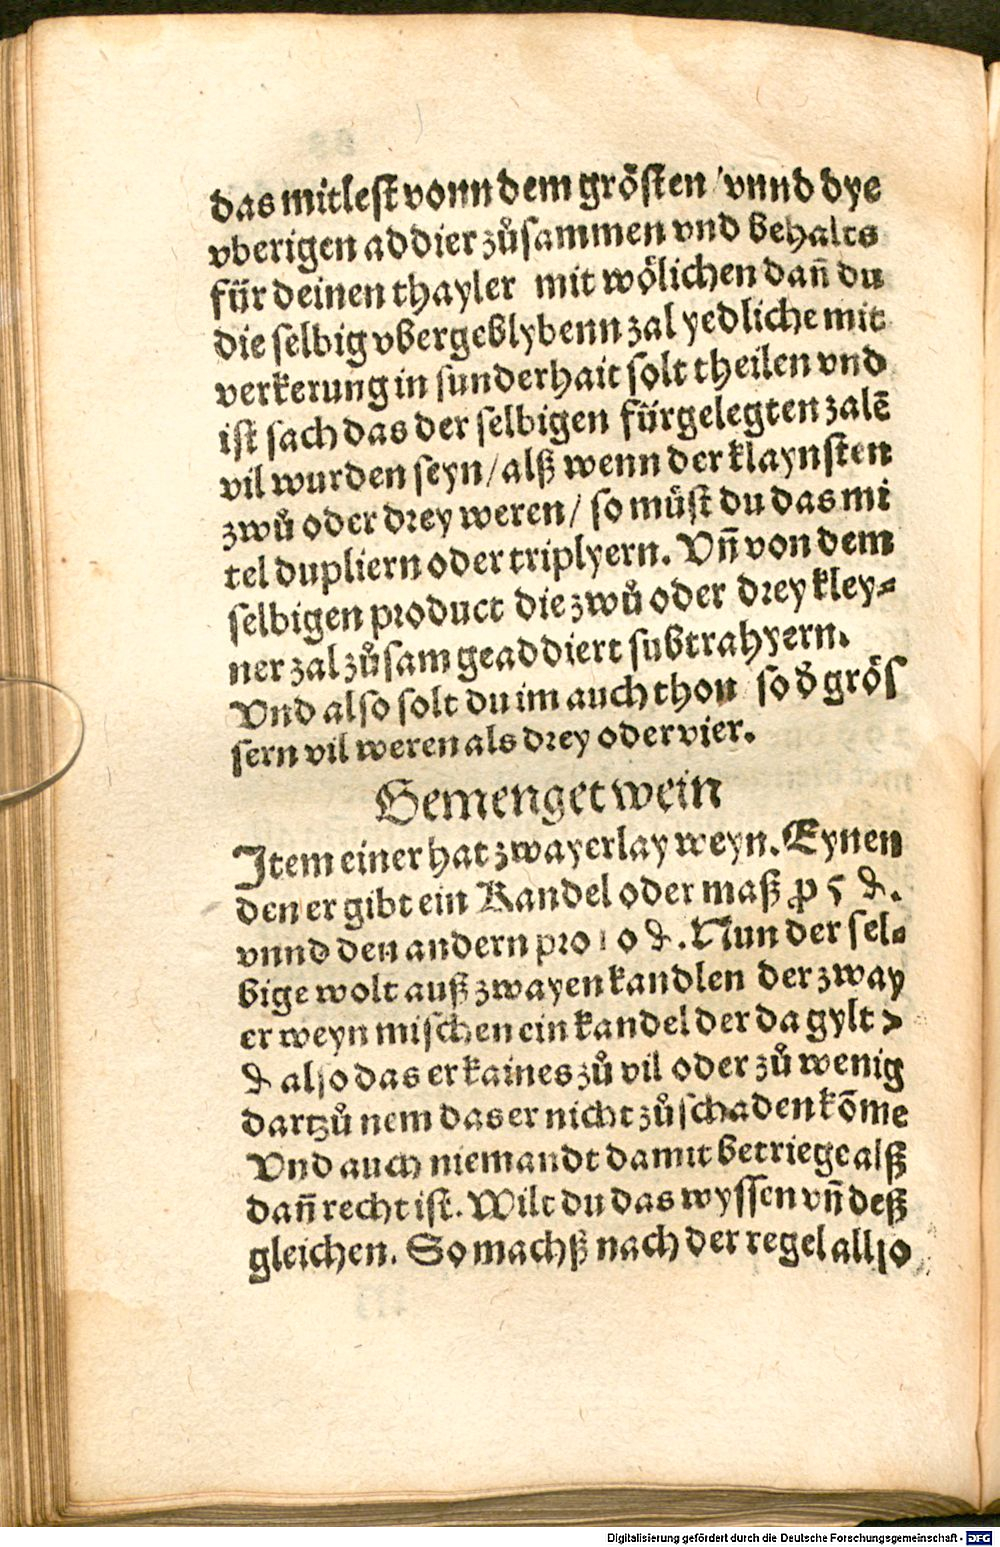 das mitlest vonn dem grösten / vnnd dye
vberigen addier zůsammen vnd behalts
für deinen thayler mit wölichen dañ du
die selbig vbergeblybenn zal yedliche mit
verkerung in sunderhait solt theilen vnd
ist sach das der selbigen fürgelegten zalē
vil wurden seyn / alß wenn der klaynsten
zwů oder drey weren / so můst du das mi
tel dupliern oder triplyern. Vñ von dem
selbigen product die zwů oder drey kley⸗
ner zal zůsam geaddiert subtrahyern.
Vnd also solt du im auch thon so d̕ grös
sern vil weren als drey oder vier.
Gemenget wein
Item einer hat zwayerlay weyn. Eynen
den er gibt ein Kandel oder maß ꝓ 5 ₰.
vnnd den andern pro 10 ₰. Nun der sel⸗
bige wolt auß zwayen kandlen der zway
er weyn mischen ein kandel der da gylt 7
₰ also das er kaines zů vil oder zů wenig
dartzů nem das er nicht zů schaden kōme
Vnd auch niemandt damit betriege alß
dañ recht ist. Wilt du das wyssen vñ deß
gleichen. So machß nach der regel allso
Digitalisierung gefördert durch die Deutsche Forschungsgemeinschaft - DFG